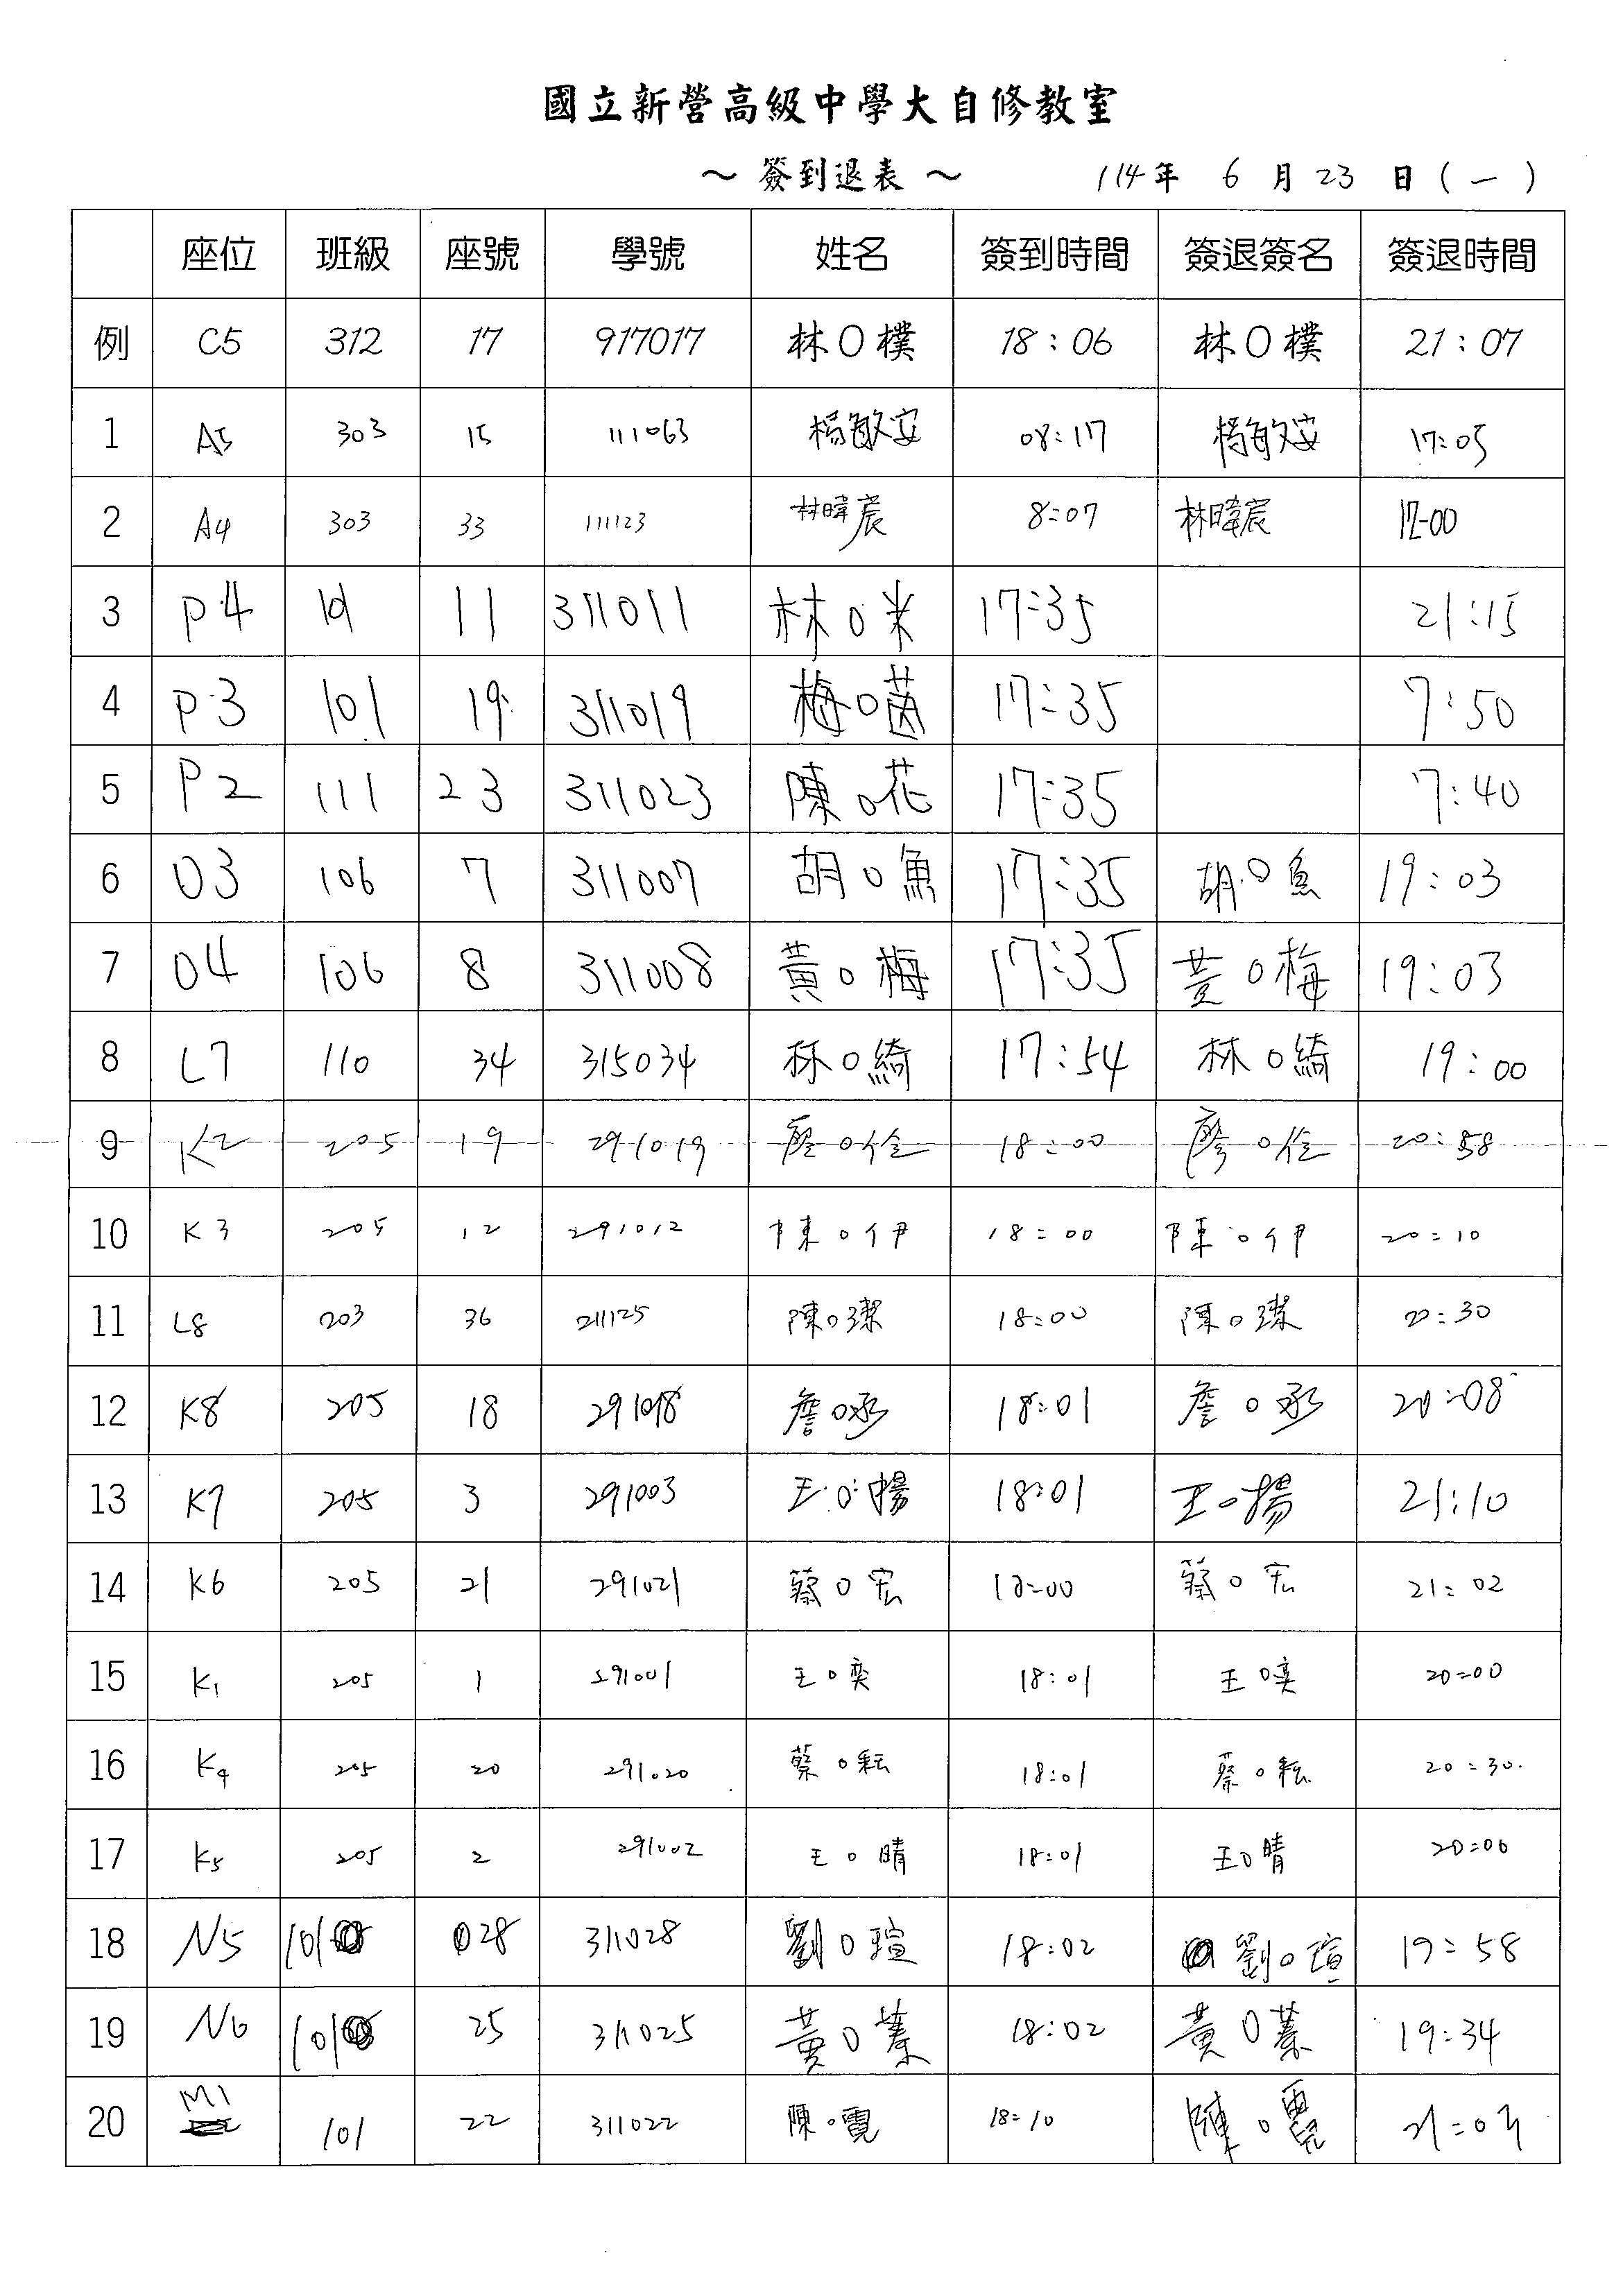 國立新營高級中學大自修教室
～ 簽到退表 ～ 114年 6 月 23 日 (一)
座位 班級 座號 學號 姓名 簽到時間 簽退簽名 簽退時間
例 C5 312 17 917017 林O樸 18:06 林O樸 21:07
1 A5 303 15 111063 楊敏安 08:17 楊敏安 17:05
2 A4 303 33 111123 林暐宸 8:07 林暐宸 17:00
3 P4 101 11 311011 林O米 17:35 21:15
4 P3 101 19 311019 梅O茵 17:35 7:50
5 P2 111 23 311023 陳O花 17:35 7:40
6 O3 106 7 311007 胡O魚 17:35 胡O魚 19:03
7 O4 106 8 311008 黃O梅 17:35 黃O梅 19:03
8 L7 110 34 315034 林O綺 17:54 林O綺 19:00
9 K2 205 19 291019 廖O佺 18:00 廖O佺 20:58
10 K3 205 12 291012 陳O伊 18:00 陳O伊 20:10
11 L8 203 36 211125 陳O潔 18:00 陳O潔 20:30
12 K8 205 18 291018 詹O丞 18:01 詹O丞 20:08
13 K7 205 3 291003 王O暘 18:01 王O揚 21:10
14 K6 205 21 291021 蔡O宏 18:00 蔡O宏 21:02
15 K1 205 1 291001 王O奕 18:01 王O奕 20:00
16 K4 205 20 291020 蔡O耘 18:01 蔡O耘 20:30
17 K5 205 2 291002 王O晴 18:01 王O晴 20:00
18 N5 101 028 311028 劉O瑄 18:02 劉O瑄 19:58
19 N6 101 25 311025 黃O蓁 18:02 黃O蓁 19:34
20 M1 101 22 311022 陳O霓 18:10 陳O霓 21:03